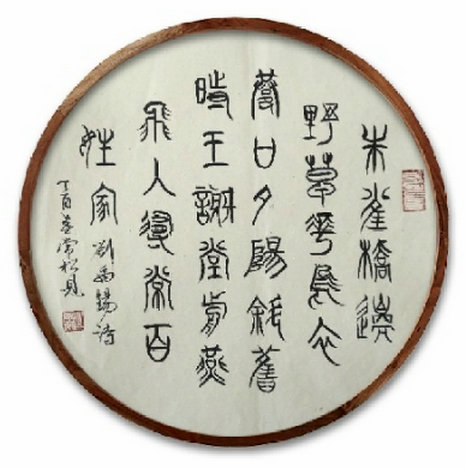 朱雀橋邊
野草花烏衣
巷口夕陽斜舊
時王謝堂前燕
飛入尋常百
姓家劉禹錫詩
丁酉春常松見